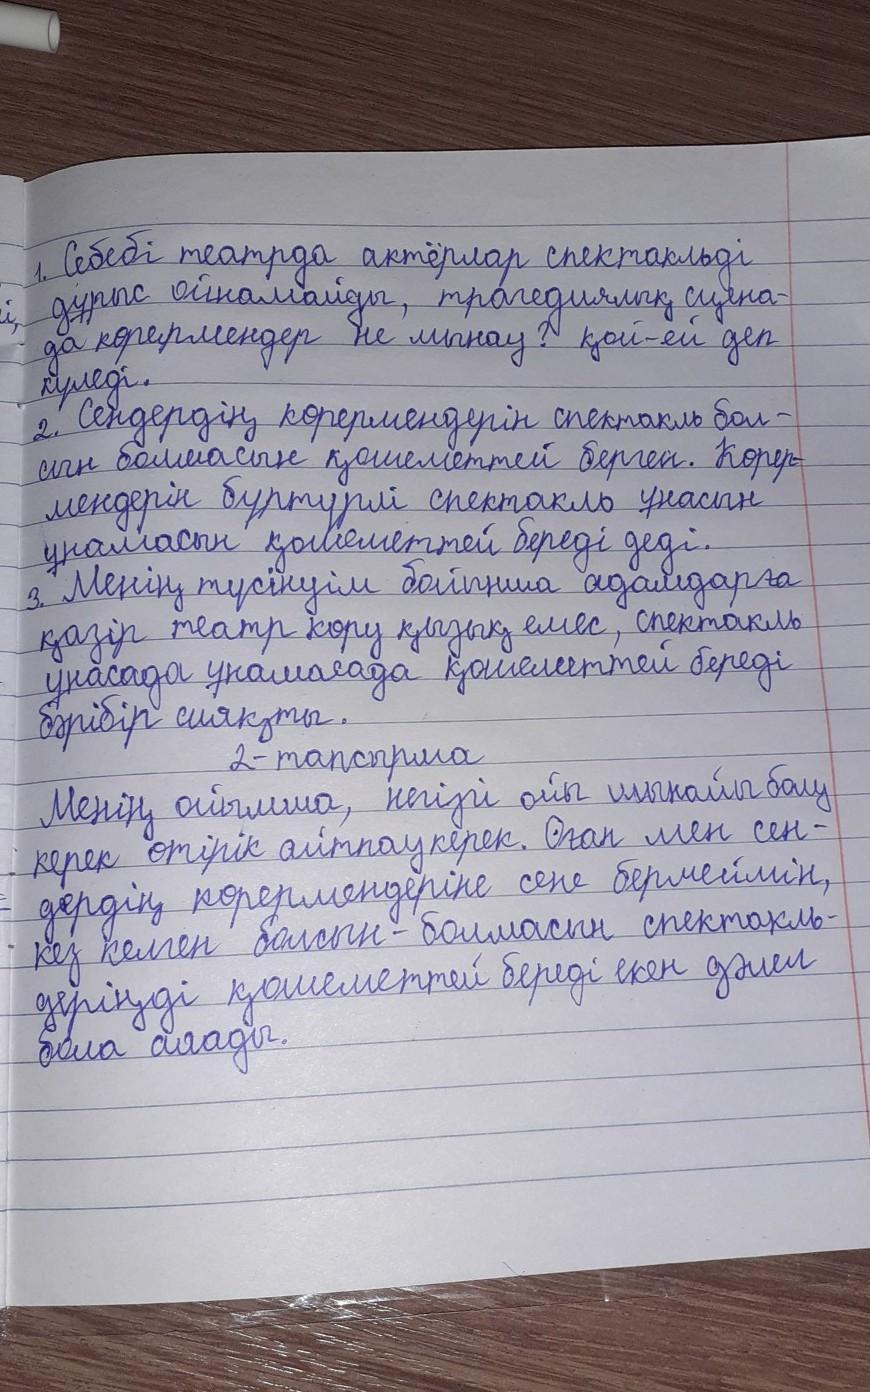 1. Себебі театрда актёрлар спектакльді
дұрыс ойнамайды, трагедиялық сцена-
да көрермендер не мынау? қой-ей деп
күледі.
2. Сендердің көрермендерің спектакль бол-
сын болмасын қошеметтей берген. Көрер-
мендерің бұртүрлі спектакль ұнасын
ұнамасын қошеметтей береді деді.
3. Менің түсінуім бойынша адамдарға
қазір театр көру қызық емес, спектакль
ұнасада ұнамасада қошеметтей береді
бәрібір сияқты.
2-тапсырма
Менің ойымша, негізгі ойы шынайы болу
керек өтірік айтпау керек. Оған мен сен-
дердің көрермендеріңе сене бермеймін,
кез келген болсын-болмасын спектакль-
деріңді қошеметтей береді екен дәлел
бола алады.
і,